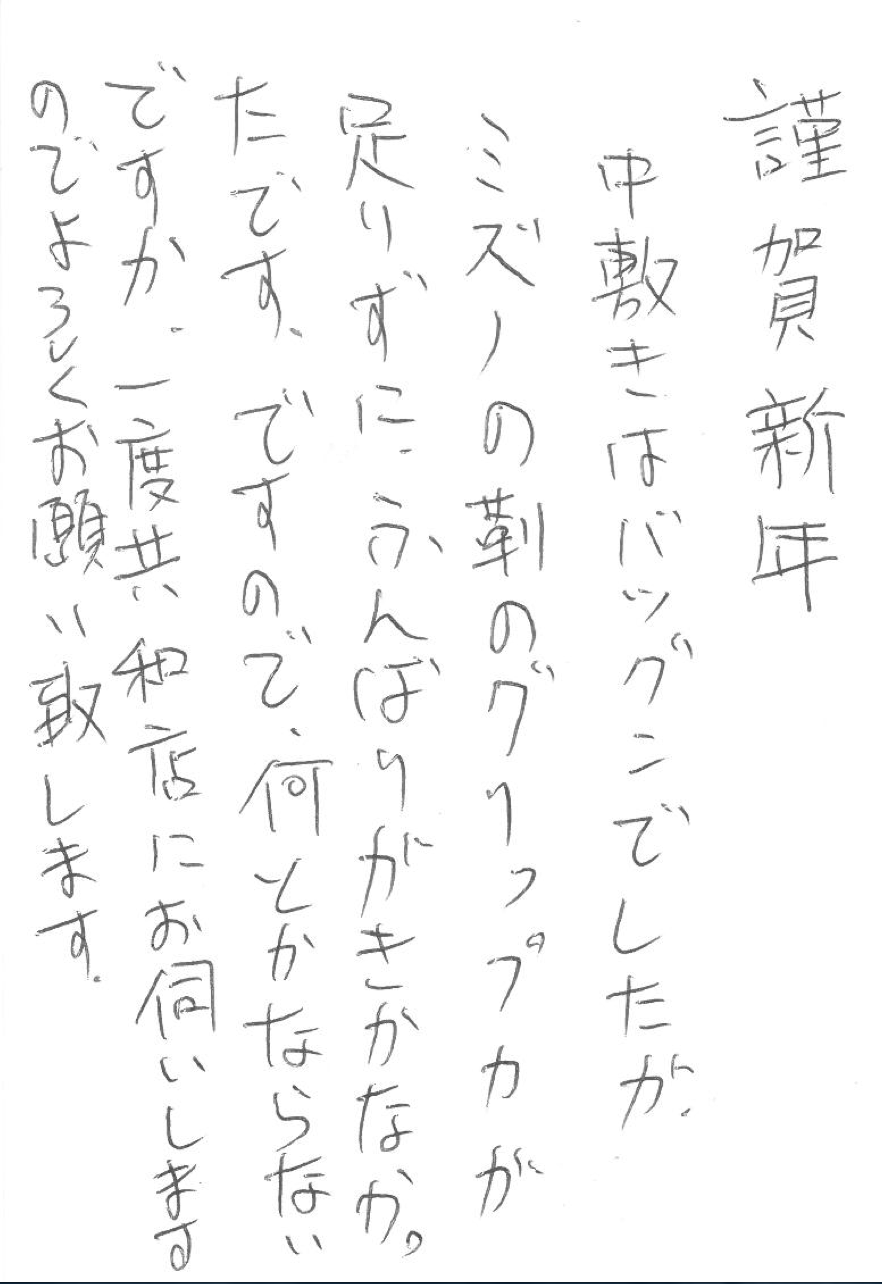 謹賀新年
中敷きはバッグンでしたが、
ミズノの靴のグリップカが
足りずに、ふんばりがきかなかっ
たです、ですので、何とかならない
ですか、一度共和店にお伺いします
のでよろしくお願い致します、